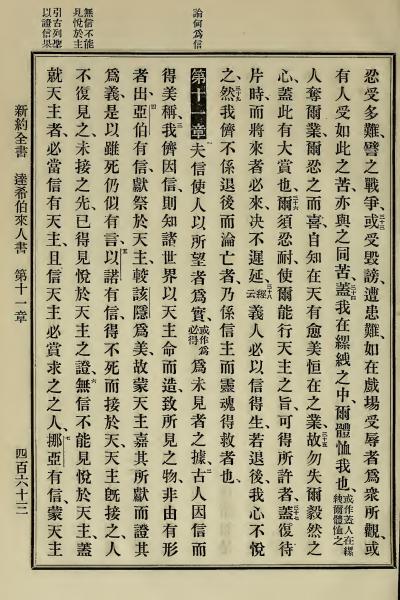 論何爲信
無信不能
見悅於主
引古列聖
以證信果
忍受多難、譬之戰爭、或受毀謗遭患難、如在戲場受辱者爲衆所觀、或
有人受如此之苦、亦與之同苦、蓋我在縲絏之中、爾體恤我也、或作蓋人在縲絏爾體恤之
人奪爾業、爾忍之而喜、自知在天有愈美恒在之業、故勿失爾毅然之
心、蓋此有大賞也、爾須忍耐、使爾能行天主之旨、可得所許者、蓋復待
片時、而將來者必來、決不遲延、經云義人必以信得生、若退後、我心不悅
之、然我儕不係退後而淪亡者、乃係信主而靈魂得救者也、
第十一章 夫信使人以所望者爲實、或作爲必得爲未見者之據、古人因信而
得美稱、我儕因信、則知諸世界以天主命而造、致所見之物、非由有形
者出、亞伯有信、獻祭於天主、較該隱爲美、故蒙天主嘉其所獻、而證其
爲義、是以雖死仍似有言、以諾有信、得不死而接於天、天主旣接之、人
不復見之、未接之先、已得見悅於天主之證、無信不能見悅於天主、蓋
就天主者、必當信有天主、且信天主必賞求之之人、挪亞有信、蒙天主
新約全書 達希伯來人書 第十一章 四百六十三